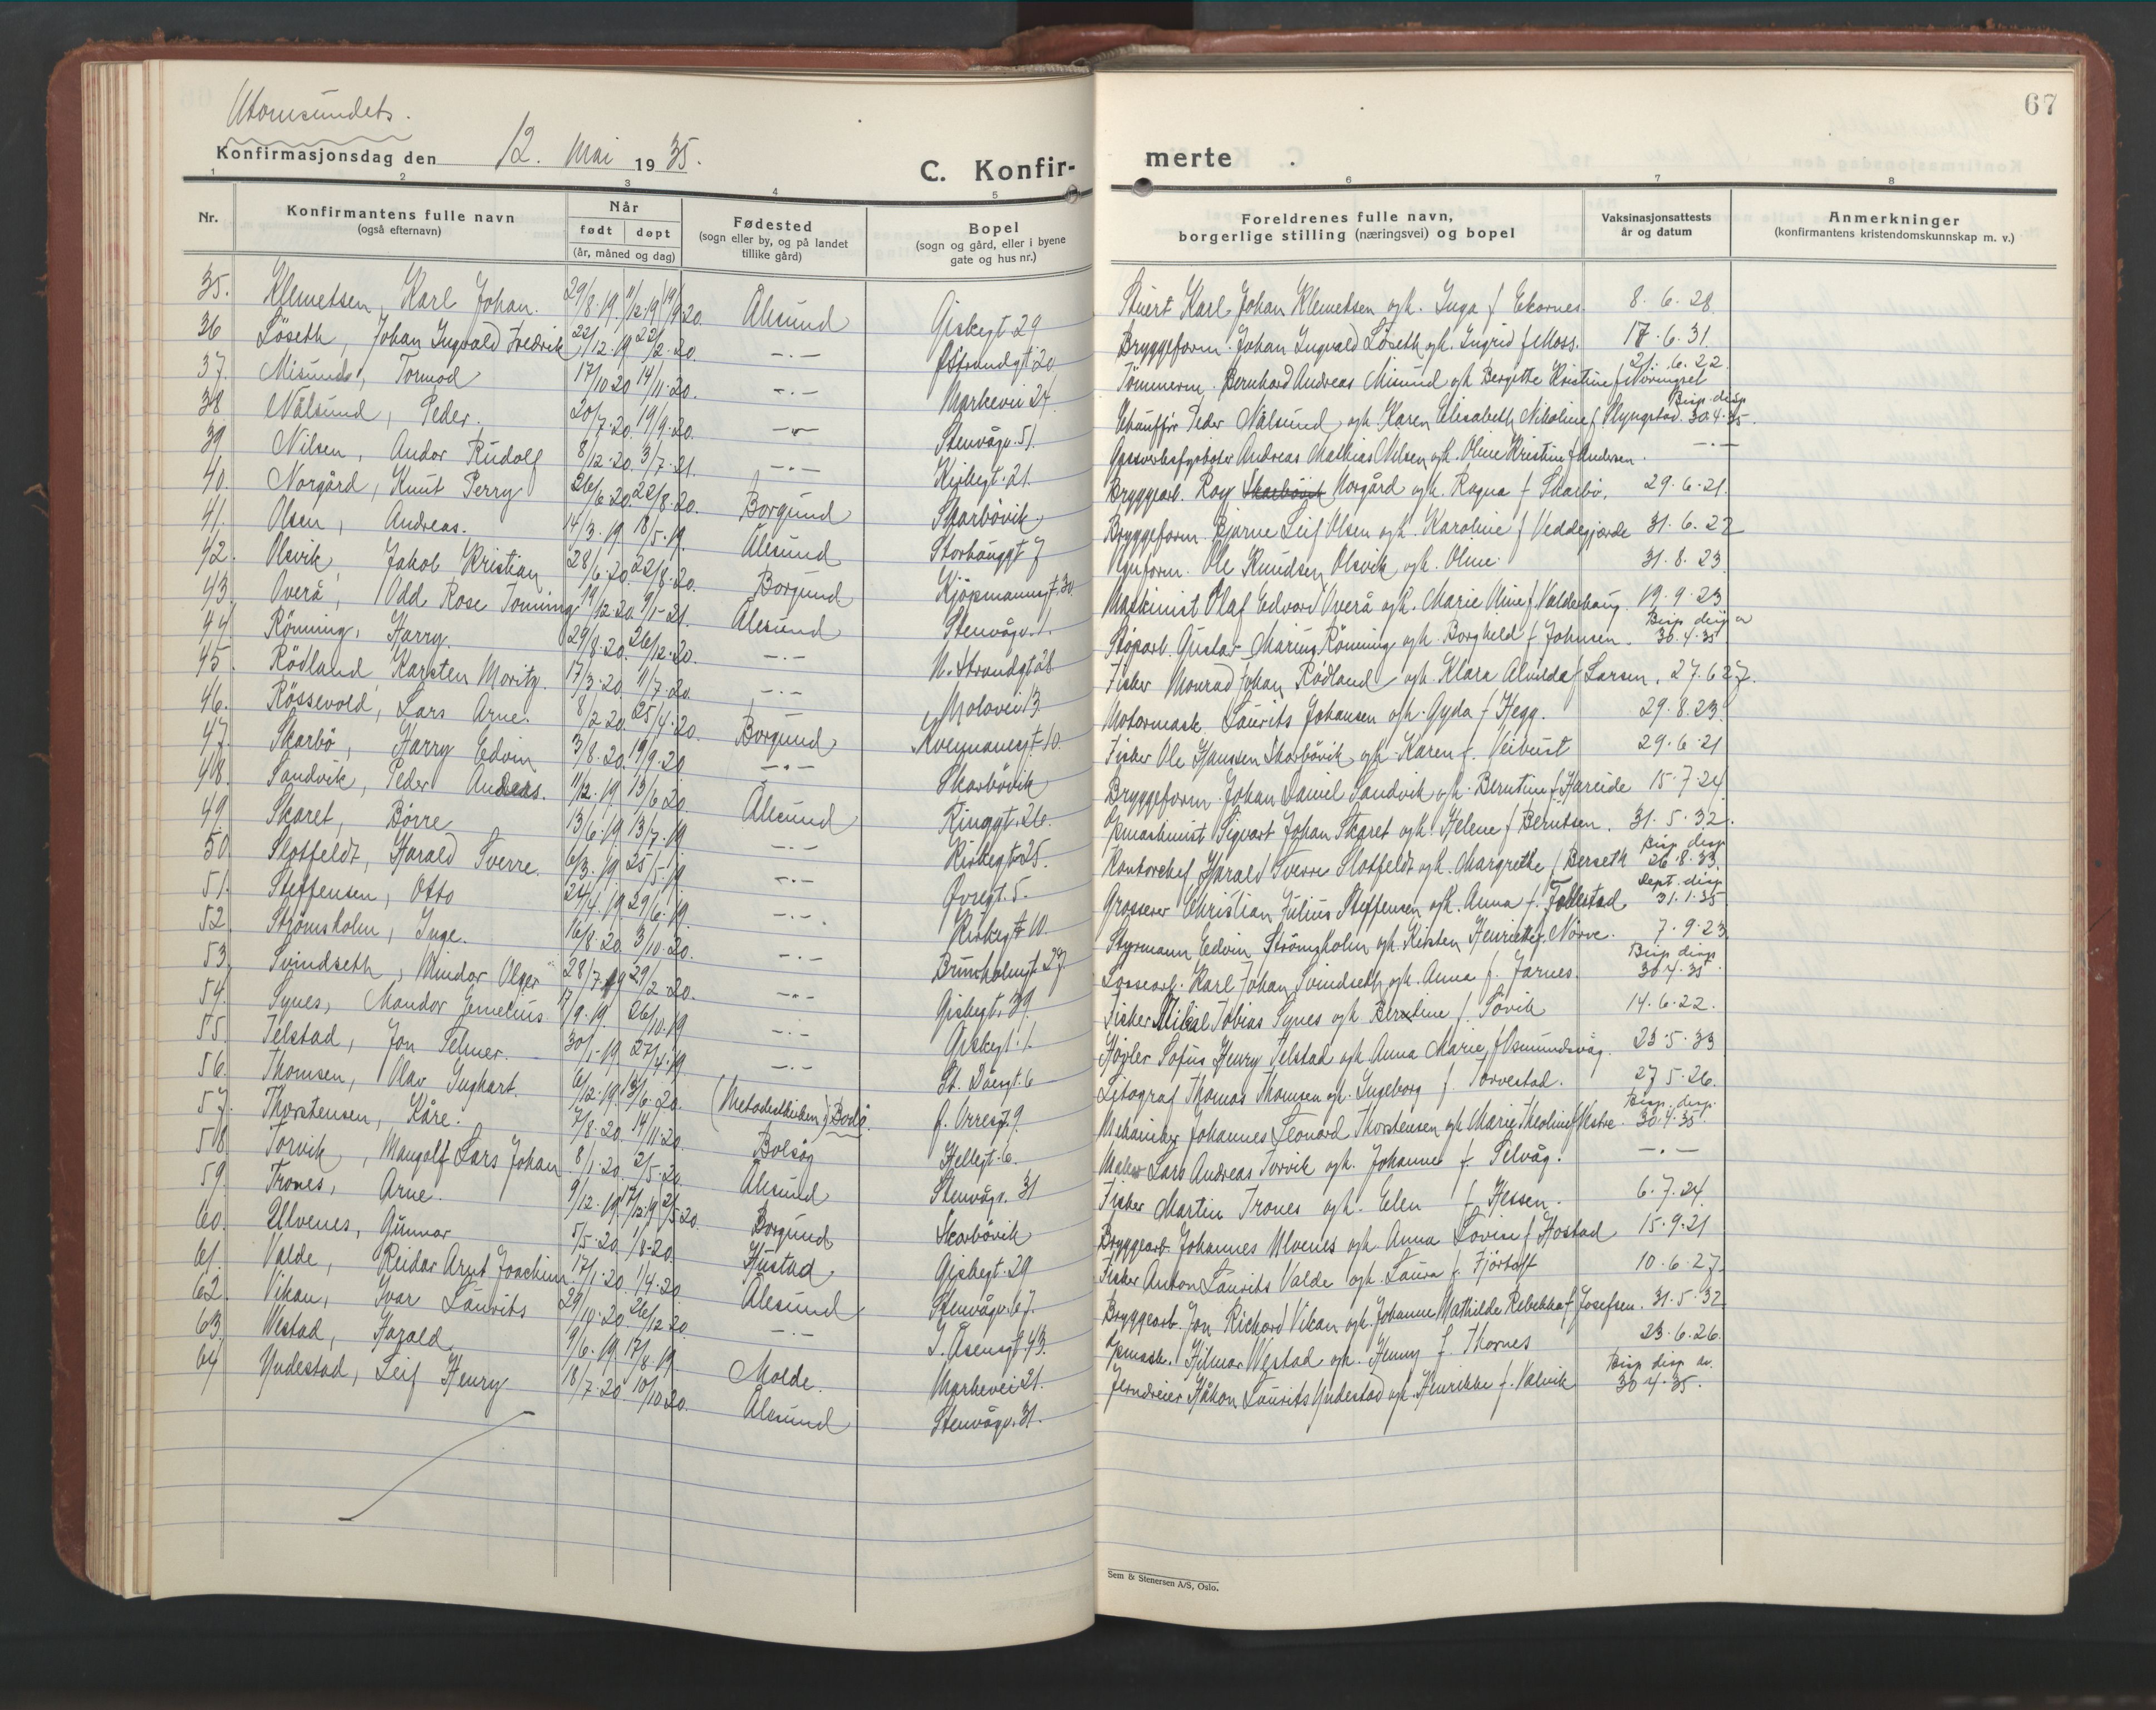 Utomsundets.
Konfirmasjonsdag den 12. Mai 1935.
C. Konfir-
merte
67
1 2 3 4 5 6 7 8
Nr.
Konfirmantens fulle navn
(også efternavn)
Når
født døpt
(år, måned og dag)
Fødested
(sogn eller by, og på landet
tillike gård)
Bopel
(sogn og gård, eller i byene
gate og hus nr.)
Foreldrenes fulle navn,
borgerlige stilling (næringsvei) og bopel
Vaksinasjonsattests
år og datum
Anmerkninger
(konfirmantens kristendomskunnskap m. v.)
35. Klemetsen, Karl Johan. 29/8.19. 11/12.19 19/9.20. Ålesund Giskegt. 29 Stuert Karl Johan Klemetsen og h. Inga f. Ekornes. 8.6.28.
36 Löseth, Johan Ingvald Fredrik 22/12.19 22/2.20. -.- Ø Strandgt. 20 Bryggeform. Johan Ingvald Löseth og h. Ingrid f. Moss. 17.6.31.
37. Misund, Tormod 17/10 20 14/11.20. -.- Markevei 24. Tömmerm. Bernhard Andreas Misund og h Bergitte Kristine f. Nöringset 21.6.22
38 Nålsund, Peder. 20/7.20. 19/9.20. -.- Stenvågv. 51. Chaufför Peder Nålsund og h Karen Elisabeth Nikoline f. Slyngstad. Bisp. disp 30.4.35.
39 Nilsen, Andor Rudolf 8/12.20. 3/7.21. -.- Kirkegt. 21. Gassverksfyrböter Andreas Mathias Nilsen og h. Oline Kristine f. Andersen. -.-
40. Norgård, Knut Perry 26/6.20. 22/8.20. Borgund Skarbövik Bryggearb. Roy Skarbövik Norgård og h. Ragna f. Skarbö. 29.6.21.
41. Olsen, Andreas. 14/3.19. 18/5.19. Ålesund Storhauggt 7 Bryggeform. Bjarne Leif Olsen og h. Karoline f. Veddegjærde 31.6.22
42. Olsvik, Jakob Kristian 28/6.20. 22/8.20. Borgund Kjöpmannsgt. 30. Ole Knudsen Olsvik og h. Oline. 31.8.23.
43. Overå, Odd Rose Tonning 19/12.20. 9/1-21. Ålesund Stenvågv. 1. Maskinist Olaf Edvard Overå og h. Marie Oline f. Valderhaug. 19.9.23
44 Rönning, Harry. 29/8.20. 26/12.20. -.- N. Strandgt 28. Gustav Marius Rönning og h. Borghild f. Johnsen. Bisp disp av 30.4.35
45. Rödland, Karsten Moritz. 17/3.20. 11/7.20. -.- Moloveii 13 Fisker Monrad Johan Rödland og h. Klara Alvilde f. Larsen. 27.6 27.
46. Rössevold, Lars Arne. 8/2 20. 25/4.20. Borgund Kvennanesgt. 10. Motormask. Laurits Johansen og h. Gyda f. Hegg. 29.8.23.
47. Skarbö, Harry Edvin 3/8.20. 19/9.20 -.- Skarbövik Fisker Ole Hanssen Skarbövik og h. Karen f. Veibust 29.6.21
48. Sandvik, Peder Andreas. 11/12.19 13/6 20. Ålesund Ringgt. 26. Bryggeform. Johan Daniel Sandvik og h. Berntine f. Hareide 15.7.24
49 Skaret, Börre 13/6.19. 13/7.19 -.- Kirkegt. 25. Sigvart Johan Skaret og h. Helene f. Berntsen. 31.5.32.
50. Slotfeldt, Harald Sverre. 6/3.19. 25/5.19. -.- Øvregt. 5. Kontorchef Harald Sverre Slotfeldt og h. Margrethe f. Berseth Bisp disp. 26.8.33.
51. Steffensen, Otto 24/4.19 29/6.19. -.-. Kirkegt 10. Grosserer Christian Julius Steffensen og h. Anna f. Follestad Dept. disp. 31.1.35
52 Strömsholm, Inge. 16/8.20. 3/10.20. -.- Brunholmgt. 27. Styrmann Edvin Strömsholm og h. Kirsten Henriette f. Nörve. 7.9.23
53. Svindseth, Mindor Olger 28/7.19 29/2.20. -.- Giskegt. 39. Lossearb. Karl Johan Svindseth og h. Anna f. Jarnes. Bisp disp. 30.4.35
54. Synes, Mandor Gemelius 17/9.19. 26/10.19 -.- Giskegt. 1. Fisker Mikal Tobias Synes og h Berntine f. Sövik 14.6.22.
55. Telstad, Jon Selmer. 30/1-19 27/4.19 -.- St. Olavsgt. 6 Hövler Sofus Henry Telstad og h. Anna Marie f. Osmundsvåg. 23.5.33
56. Thomsen, Olav Inghart. 6/12.19. 13/6.20. (Metodistkirken) Bodö. J. Aaresgt. 9. Litograf Thomas Thomsen og h. Ingeborg f. Torvestad. 27 5.26.
57. Thorstensen, Kåre. 7/8.20. 14/11.20. Bolsöy Hellegt. 6. Mekaniker Johannes Leonard Thorstensen og h Marie Theoline f. Mestre. Bisp. disp. 30.4.35.
58 Torvik, Mangolf Lars Johan 8/1.20. 2/5-20 Ålesund Stenvågv. 31 Maler Lars Andreas Torvik og h. Johanne f. Selvåg. -.-
59. Trones, Arne. 9/12.19. 17/12.19 2/5 20. Borgund Skarbövik Fisker Martin Trones og h. Elen f. Hessen. 6.7.24.
60. Ulvenes, Gunnar 5/5.20. 1/8-20. Hustad Giskegt. 29 Bryggearb Johannes Ulvenes og h. Anna Lovise f. Hostad 15.9.21
61. Valde, Reidar Arnt Joachim 17/1.20. 1/4.20 Ålesund Stenvågv. 67. Fisker Anton Laurits Valde og h. Laura f. Fjörtoft 10.6.27.
62. Vikan, Ivar Laurits 29/10.20 26/12.20. -.- I. Åsensgt. 43. Bryggearb. Jon Richard Vikan og h. Johanne Mathilde Rebekka f. Josefsen. 31.5.32
63. Westad, Harald 9/6.19. 17/8.19. Molde. Markevei 21. Hilmar Westad og h. Henny f. Thornes 23.6.26.
64 Yndestad, Leif Henry 18/7.20. 10/10 20. Ålesund Stenvågv. 31. Jerndreier Håkon Laurits Yndestad og h. Henrikke f. Valvik Bisp disp av. 30 4.35.
Sem & Stenersen A/S, Oslo.